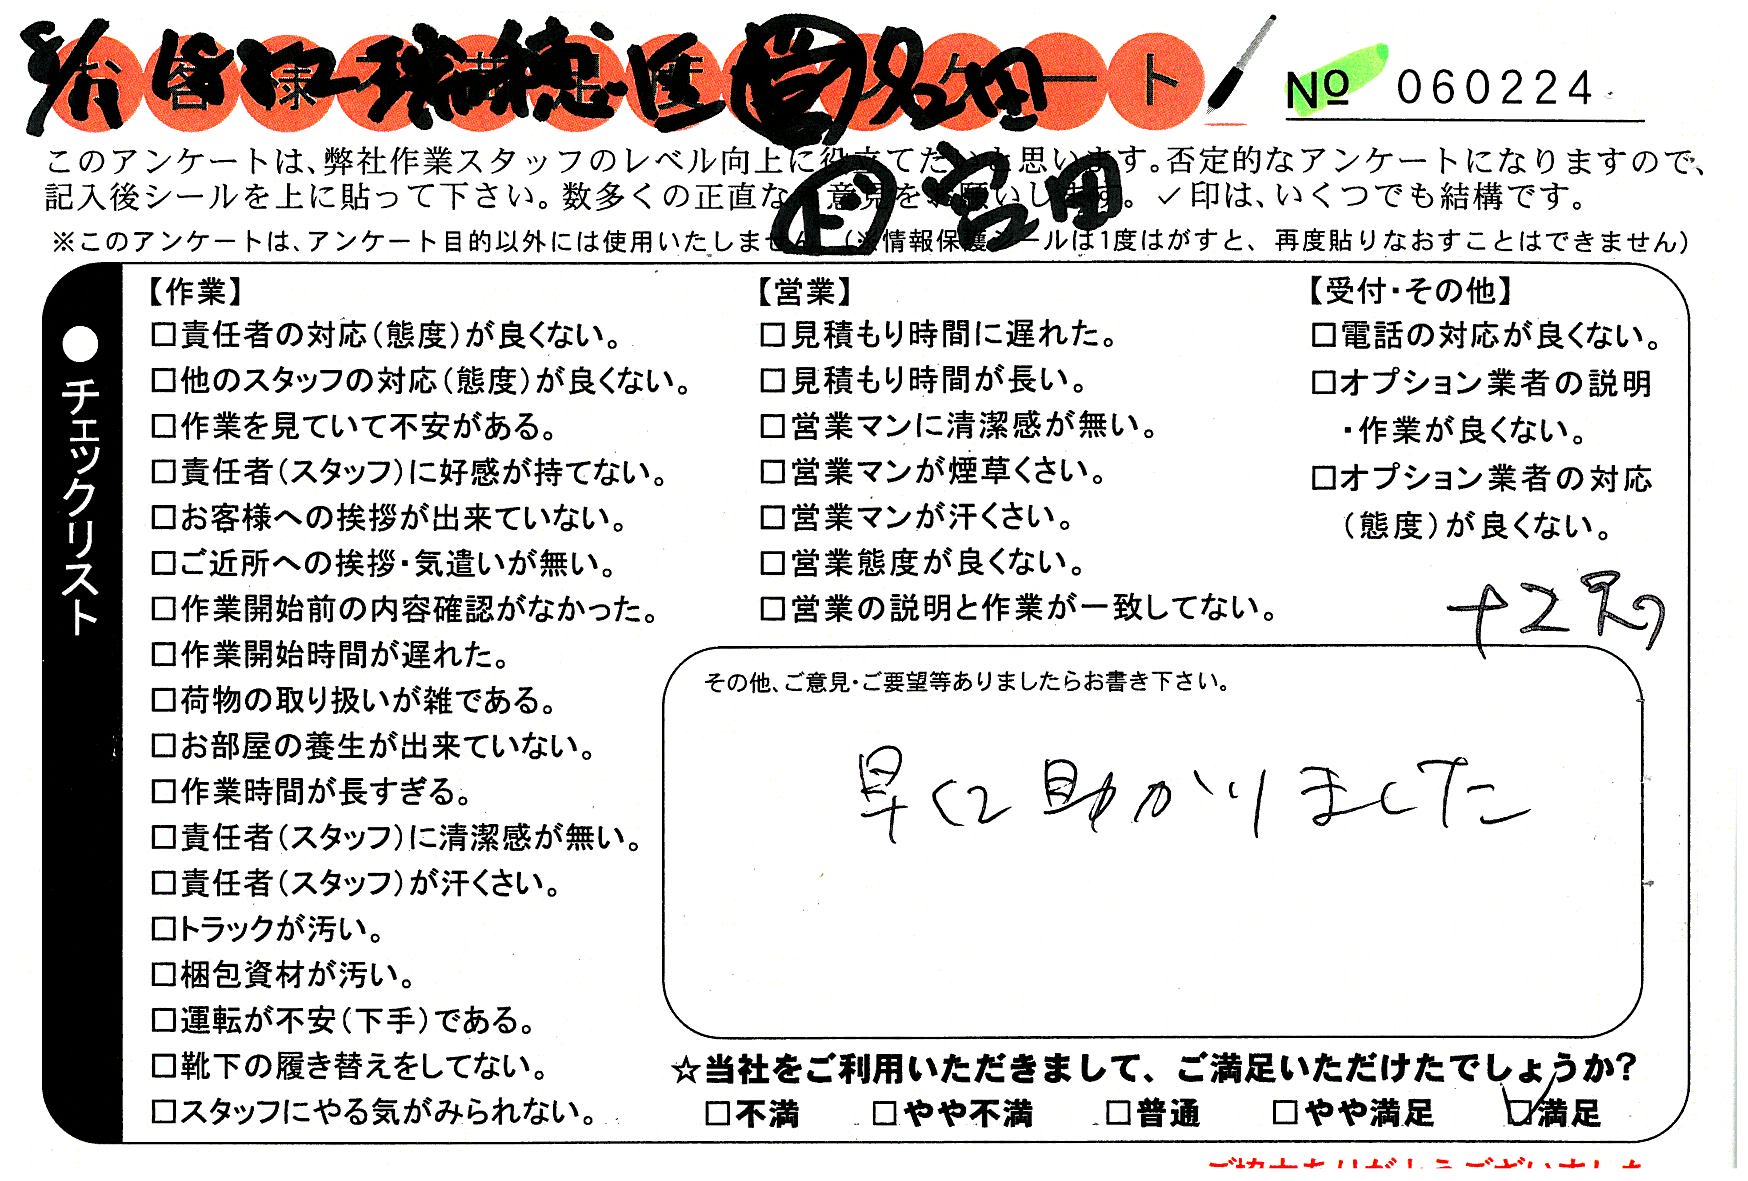 お客様満足度アンケート
№ 060224
このアンケートは、弊社作業スタッフのレベル向上に役立てたいと思います。否定的なアンケートになりますので、
記入後シールを上に貼って下さい。数多くの正直なご意見をお願いします。✓印は、いくつでも結構です。
※このアンケートは、アンケート目的以外には使用いたしません。(※情報保護シールは1度はがすと、再度貼りなおすことはできません)
●チェックリスト
【作業】
□責任者の対応(態度)が良くない。
□他のスタッフの対応(態度)が良くない。
□作業を見ていて不安がある。
□責任者(スタッフ)に好感が持てない。
□お客様への挨拶が出来ていない。
□ご近所への挨拶・気遣いが無い。
□作業開始前の内容確認がなかった。
□作業開始時間が遅れた。
□荷物の取り扱いが雑である。
□お部屋の養生が出来ていない。
□作業時間が長すぎる。
□責任者(スタッフ)に清潔感が無い。
□責任者(スタッフ)が汗くさい。
□トラックが汚い。
□梱包資材が汚い。
□運転が不安(下手)である。
□靴下の履き替えをしてない。
□スタッフにやる気がみられない。
【営業】
□見積もり時間に遅れた。
□見積もり時間が長い。
□営業マンに清潔感が無い。
□営業マンが煙草くさい。
□営業マンが汗くさい。
□営業態度が良くない。
□営業の説明と作業が一致してない。
【受付・その他】
□電話の対応が良くない。
□オプション業者の説明
・作業が良くない。
□オプション業者の対応
(態度)が良くない。
その他、ご意見・ご要望等ありましたらお書き下さい。
早くて助かりました
☆当社をご利用いただきまして、ご満足いただけたでしょうか?
□不満 □やや不満 □普通 □やや満足 ☑満足
ご協力ありがとうございました